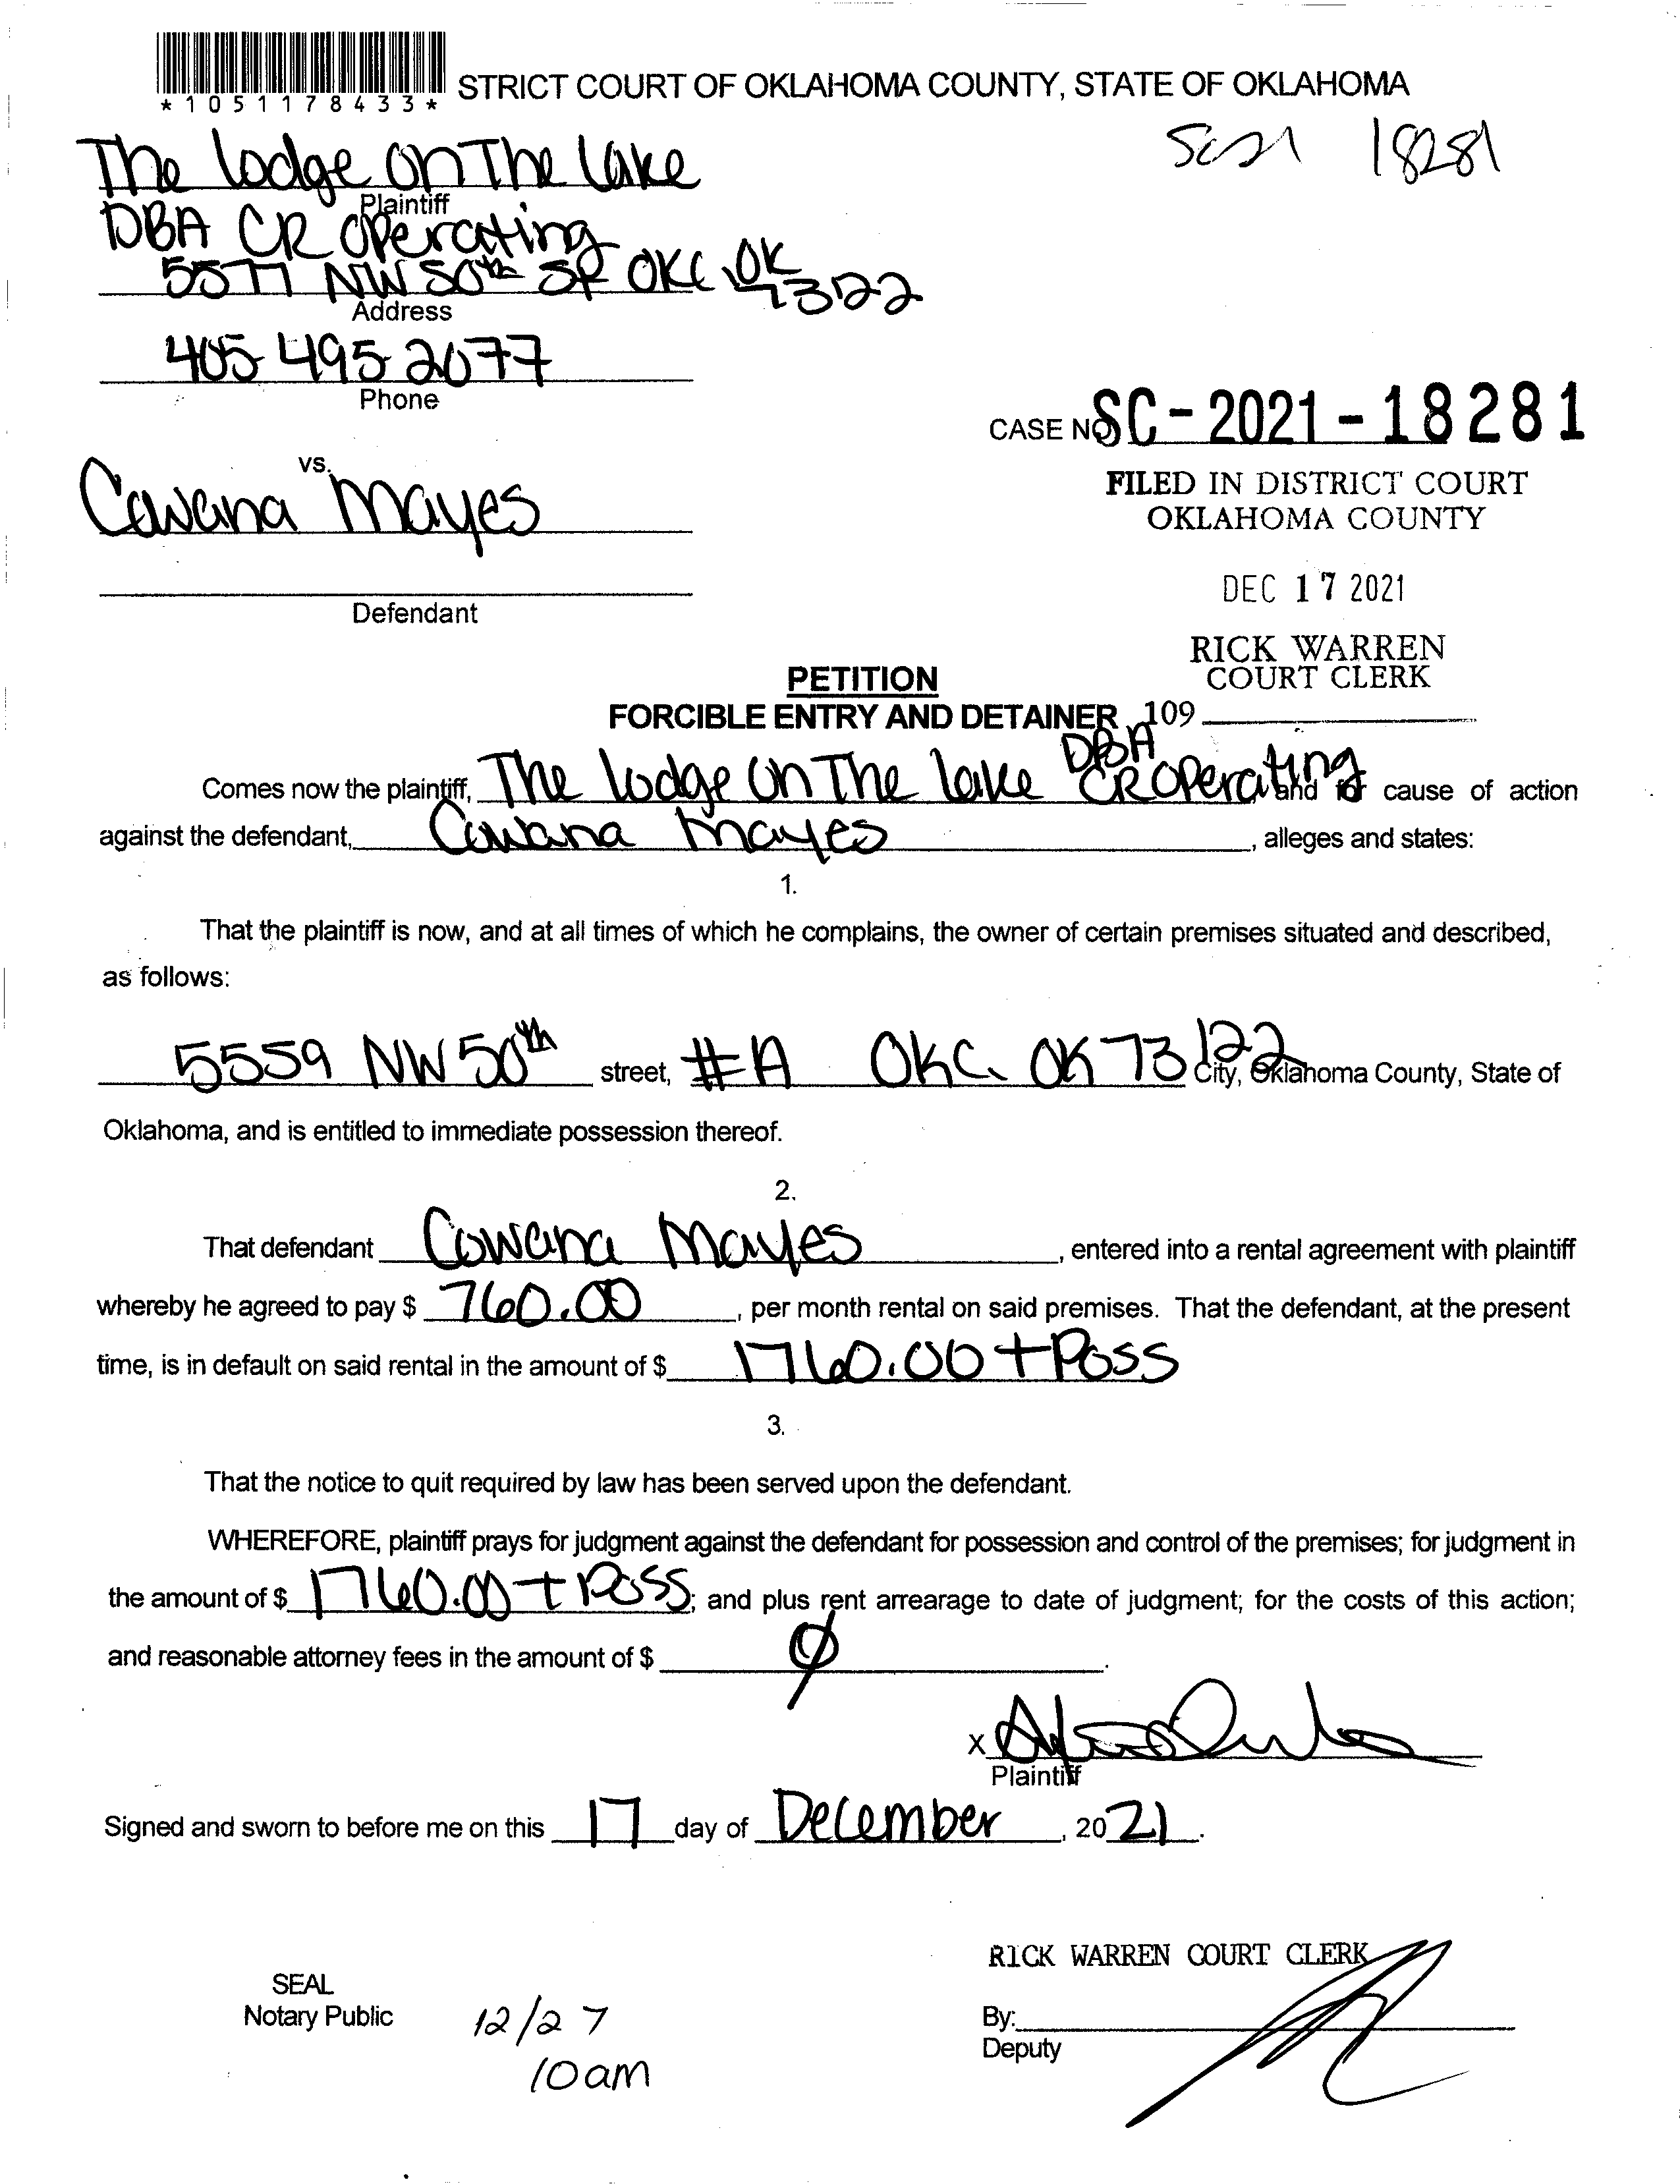 *1051178433*
STRICT COURT OF OKLAHOMA COUNTY, STATE OF OKLAHOMA
SC21 18281
The lodge on The lake
Plaintiff
DBA CR Operating
5577 NW 50th St OKC, OK
73122
Address
405 495 2077
Phone
CASE NO SC-2021-18281
FILED IN DISTRICT COURT
OKLAHOMA COUNTY
vs.
Cawana Mayes
DEC 17 2021
Defendant
RICK WARREN
COURT CLERK
PETITION
FORCIBLE ENTRY AND DETAINER
109
Comes now the plaintiff, The lodge on The lake DBA CR Operating and for cause of action
against the defendant, Cawana Mayes, alleges and states:
1.
That the plaintiff is now, and at all times of which he complains, the owner of certain premises situated and described,
as follows:
5559 NW 50th street, #A OKC, OK 73122 City, Oklahoma County, State of
Oklahoma, and is entitled to immediate possession thereof.
2.
That defendant Cawana Mayes, entered into a rental agreement with plaintiff
whereby he agreed to pay $ 760.00, per month rental on said premises. That the defendant, at the present
time, is in default on said rental in the amount of $ 1760.00 + Poss
3.
That the notice to quit required by law has been served upon the defendant.
WHEREFORE, plaintiff prays for judgment against the defendant for possession and control of the premises; for judgment in
the amount of $ 1760.00 + Poss; and plus rent arrearage to date of judgment; for the costs of this action;
and reasonable attorney fees in the amount of $ 0.
X
Plaintiff
Signed and sworn to before me on this 17 day of December, 2021.
RICK WARREN COURT CLERK
SEAL
Notary Public
12/27
10am
By:
Deputy